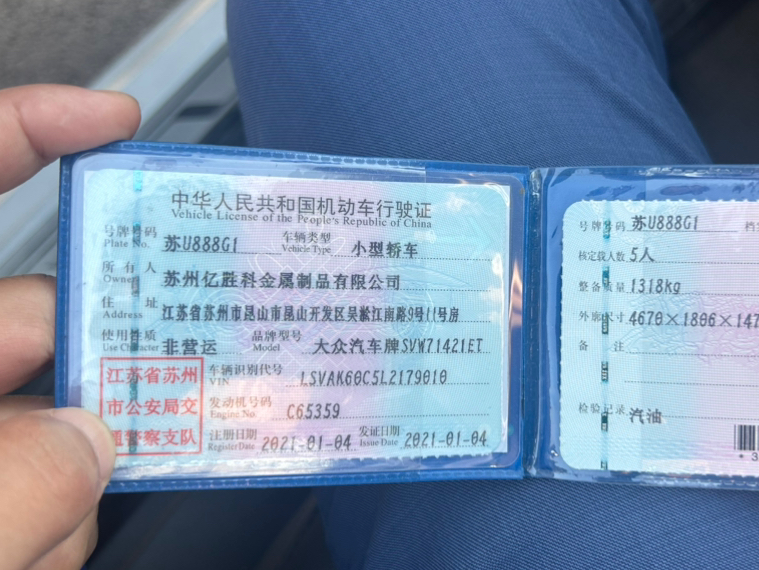 中华人民共和国机动车行驶证
Vehicle License of the People's Republic of China
号牌号码 苏U888G1 车辆类型 小型轿车
Plate No. Vehicle Type
所有人 苏州亿胜科金属制品有限公司
Owner
住址 江苏省苏州市昆山市昆山开发区吴淞江南路9号11号房
Address
使用性质 非营运 品牌型号 大众汽车牌SVW71421ET
Use Character Model
江苏省苏州
市公安局交
通警察支队
车辆识别代号 LSVAK60C5L2179010
VIN
发动机号码 C65359
Engine No.
注册日期 2021-01-04 发证日期 2021-01-04
Register Date Issue Date
号牌号码 苏U888G1
核定载人数 5人
整备质量 1318kg
外廓尺寸 4670×1806×147
备注
检验记录 汽油